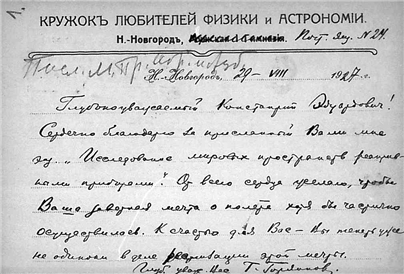 1.
КРУЖОКЪ ЛЮБИТЕЛЕЙ ФИЗИКИ и АСТРОНОМІИ.
Н.-Новгородъ, Почт. ящ. № 24.
Н.-Новгородъ, 29 - VIII 1927 г.
Глубокоуважаемый Константин Эдуардович!
Сердечно благодарю за присланный Вами мне
экз. „Исследование мировых пространств реактив-
ными приборами". От всего сердца желаю, чтобы
Ваша заветная мечта о полете хотя бы частично
осуществилась. К счастью для Вас - Вы теперь уже
не одиноки в деле реализации этой мечты.
Глуб. уваж. Вас Г. Горяинов.